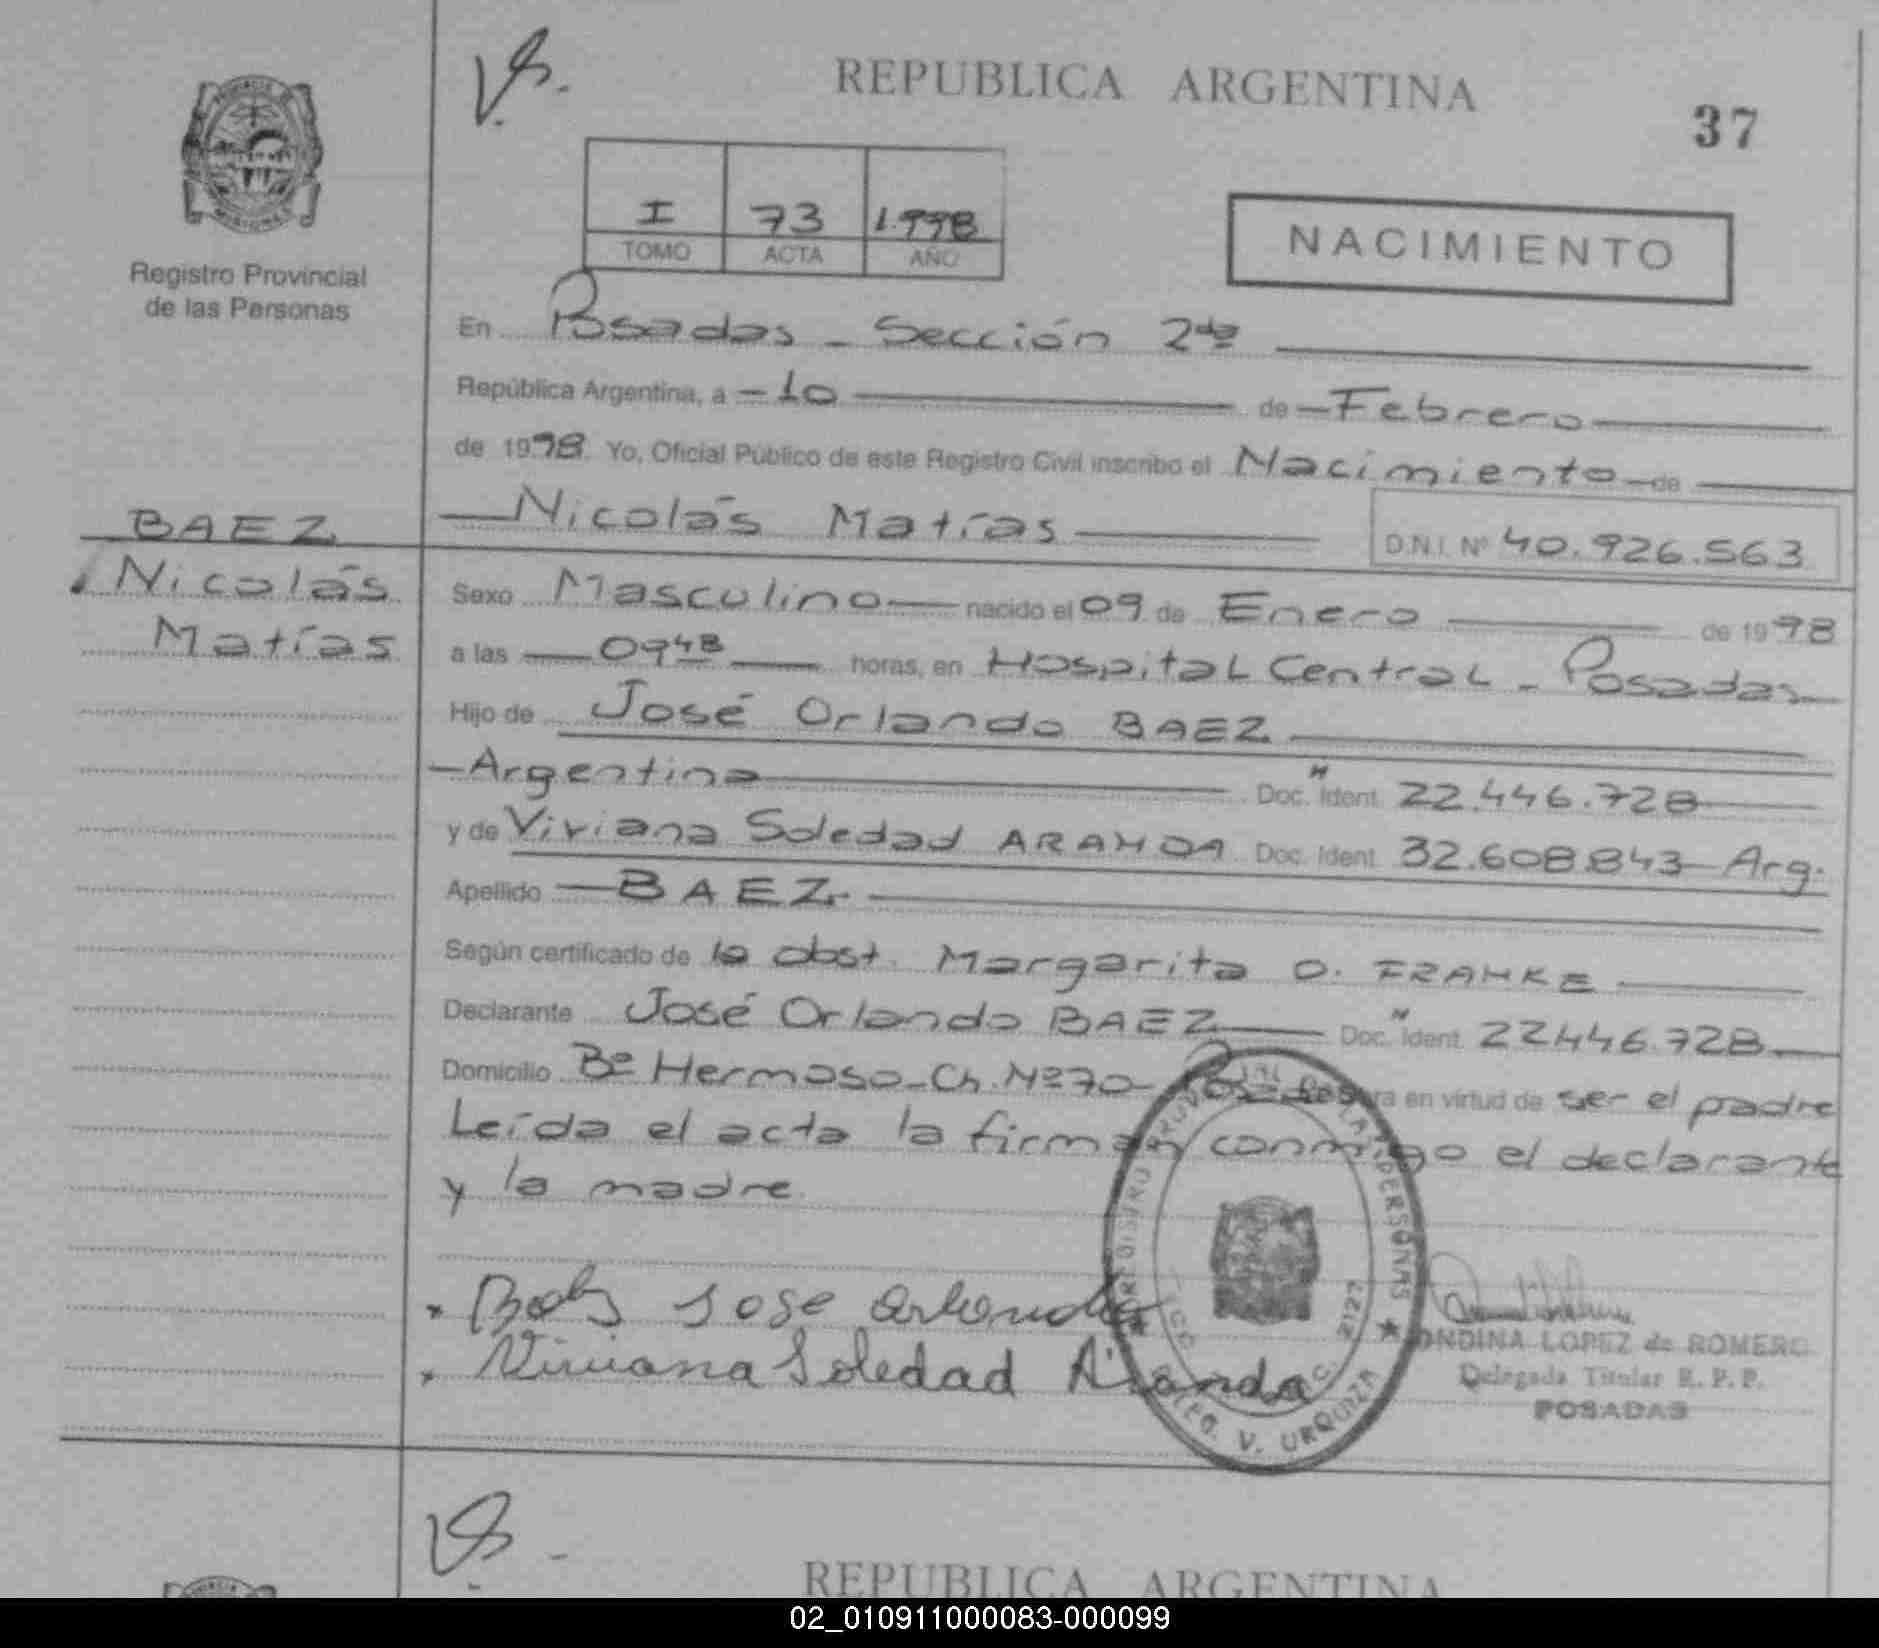 REPUBLICA ARGENTINA
37
I 73 1.998
TOMO ACTA AÑO
NACIMIENTO
Registro Provincial
de las Personas
En Posadas - Sección 2da
República Argentina, a - 10 de - Febrero
de 1998. Yo, Oficial Público de este Registro Civil inscribo el Nacimiento de
BAEZ
Nicolás
Matías
Nicolás Matías D.N.I. Nº 40.926.563
Sexo Masculino nacido el 09 de Enero de 1998
a las 09 48 horas, en Hospital Central - Posadas
Hijo de José Orlando BAEZ
- Argentina Doc. Ident. 22.446.728
y de Viviana Soledad ARANDA Doc. Ident. 32.608.843 - Arg.
Apellido BAEZ
Según certificado de la obst. Margarita O. FRANKE
Declarante José Orlando BAEZ Doc. Ident. 22.446.728
Domicilio Bº Hermoso - Ch. Nº 70 - Posadas en virtud de ser el padre
Leída el acta la firman conmigo el declarante
y la madre
Jose Orlando
Viviana Soledad Aranda
REGISTRO PROVINCIAL DE LAS PERSONAS
DELEG. V. URQUIZA
ONDINA LOPEZ de ROMERO
Delegada Titular R. P. P.
POSADAS
REPUBLICA ARGENTINA
02_010911000083-000099